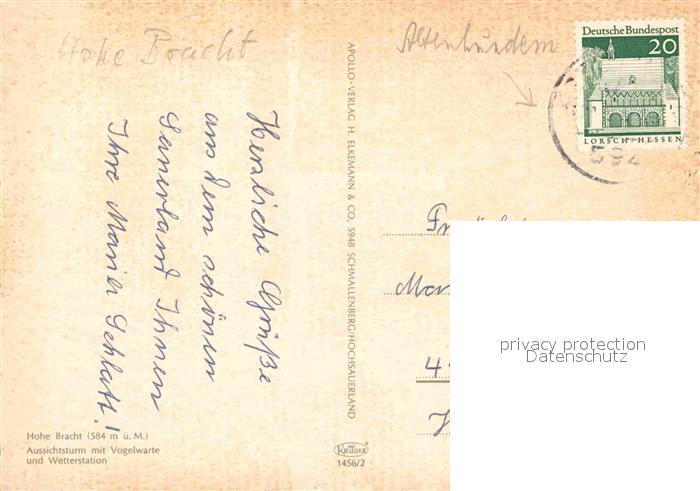 Hohe Bracht
Altenhundem
Deutsche Bundespost
20
LORSCH/HESSEN
Herzliche Grüße
aus dem schönen
Sauerland Ihnen
Ihre
APOLLO-VERLAG H. ELKEMANN & CO, 5948 SCHMALLENBERG/HOCHSAUERLAND
privacy protection
Datenschutz
Hohe Bracht (584 m ü. M.)
Aussichtsturm mit Vogelwarte
und Wetterstation
KRÜGER
1456/2